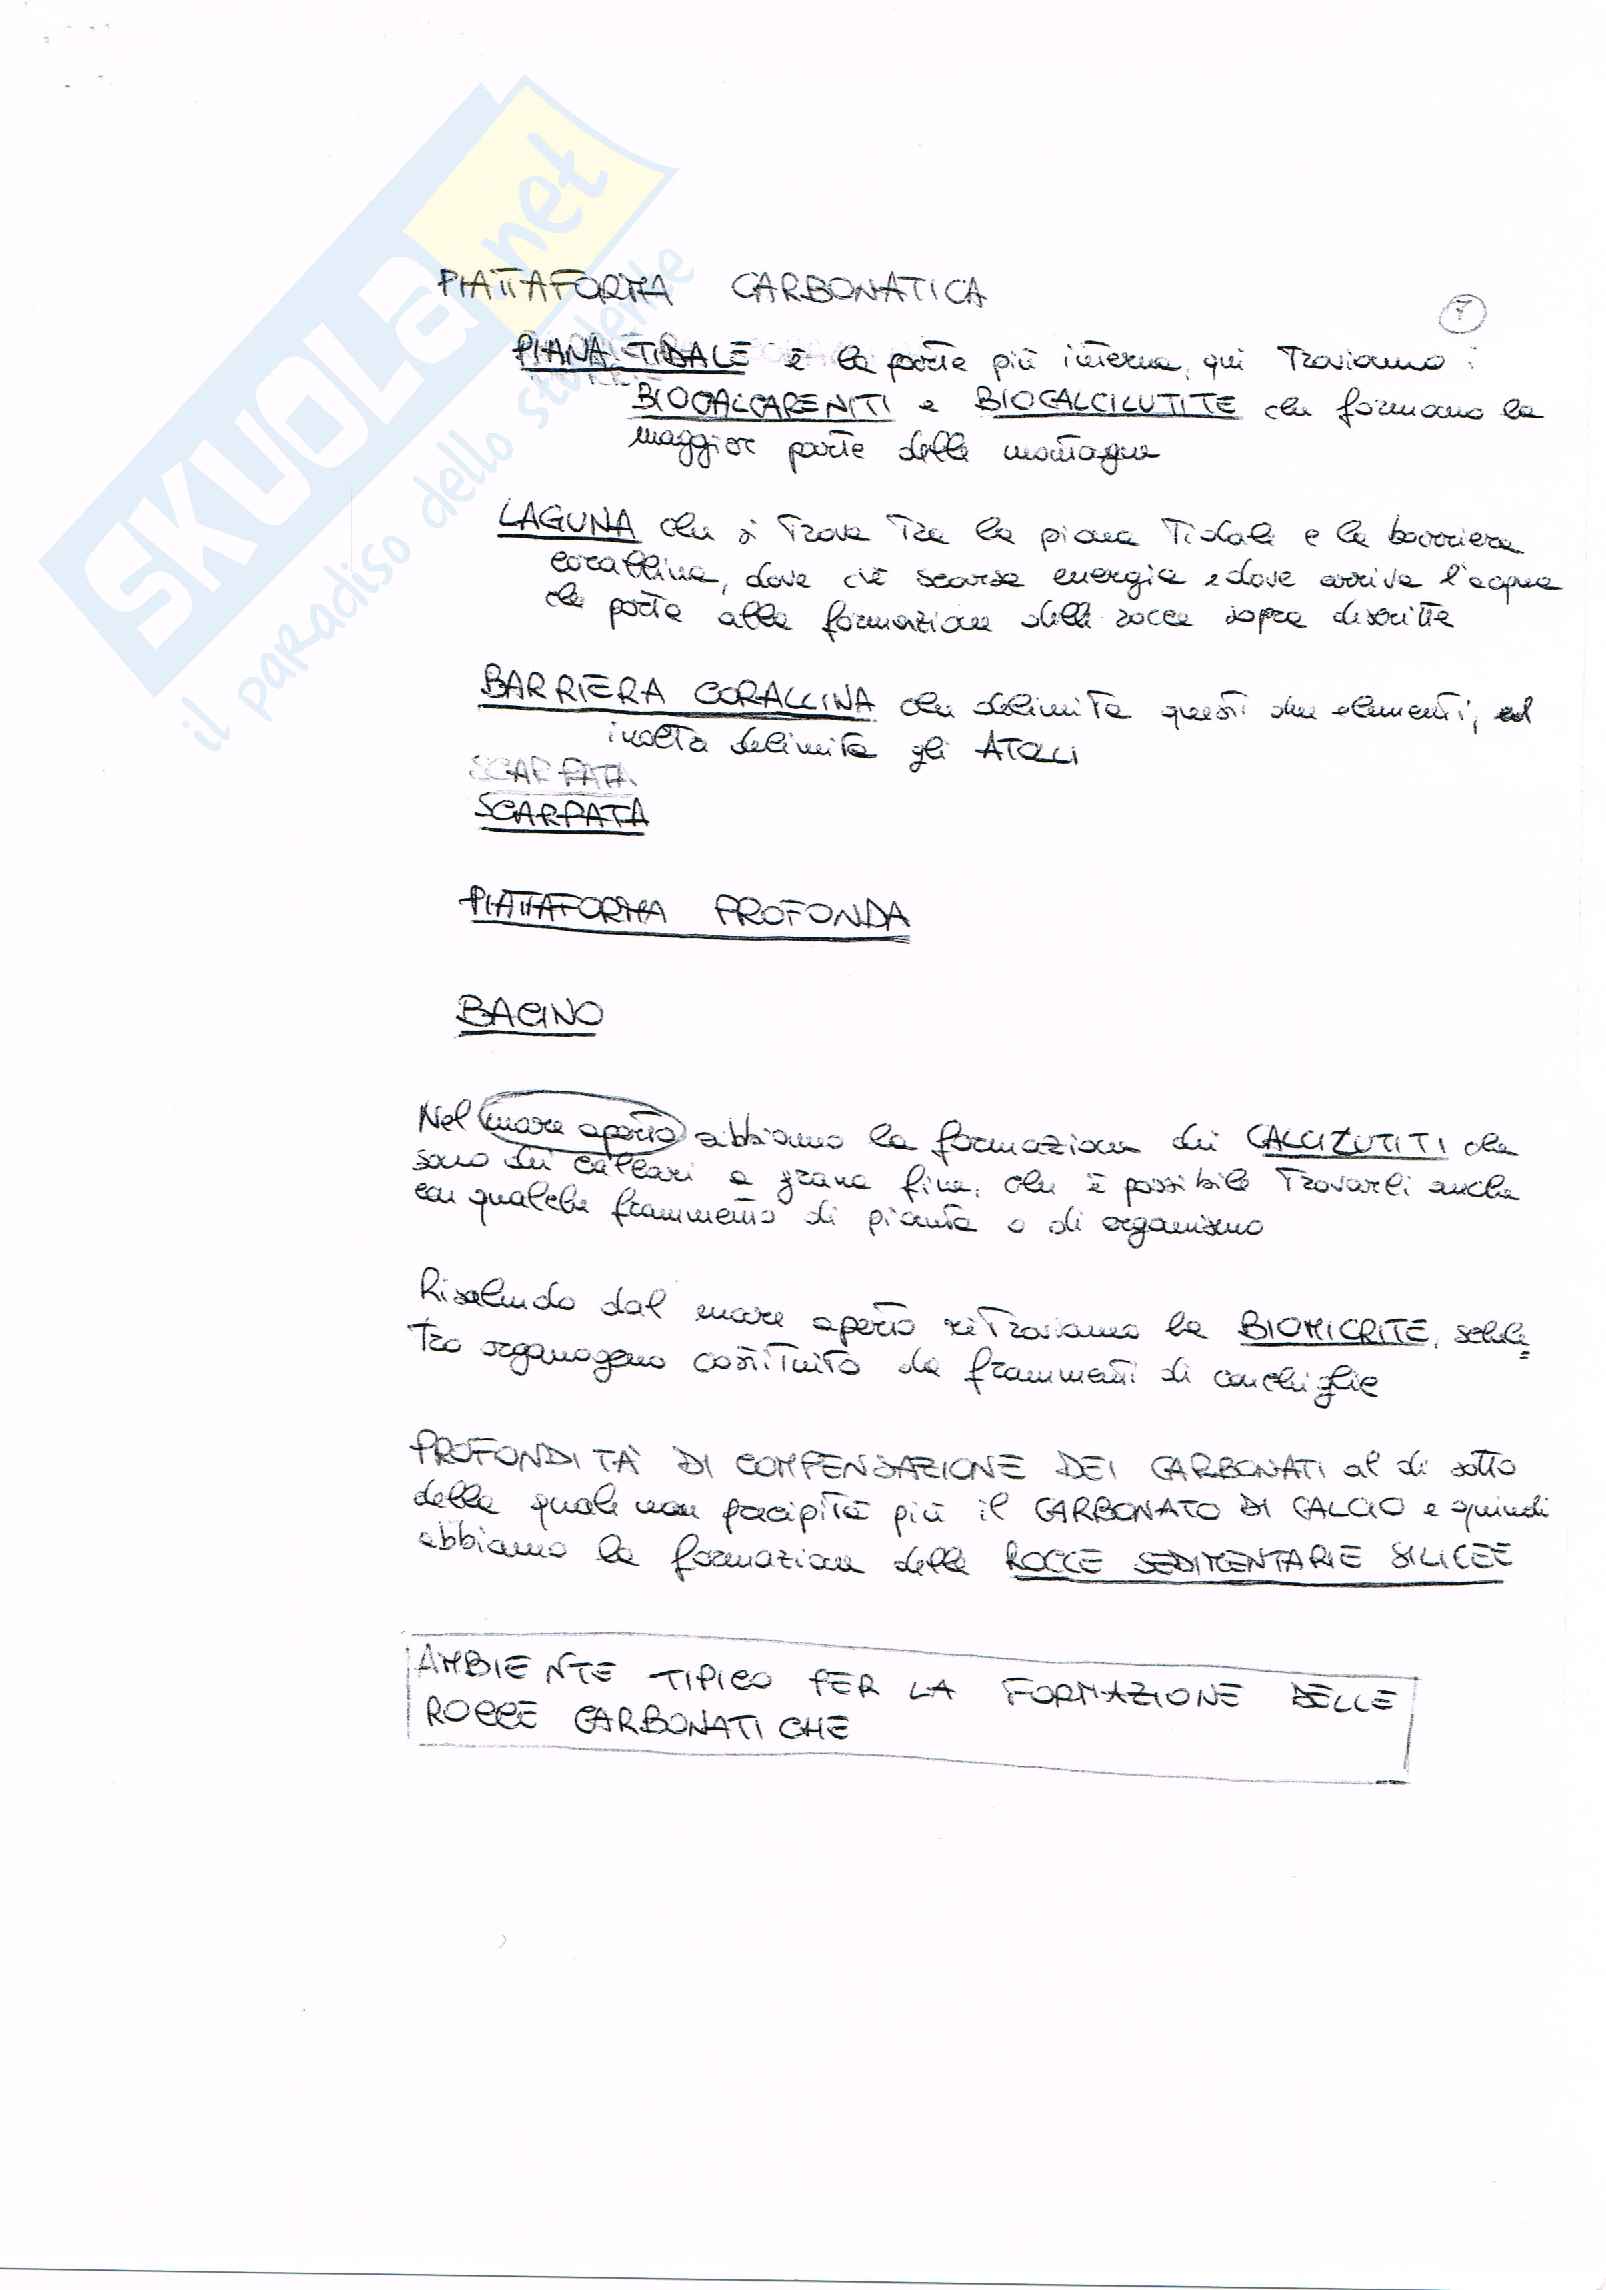 SKUOLa.net
il paradiso dello studente
PIATTAFORMA CARBONATICA
7
PIANA TIDALE è la parte più interna, qui troviamo i
BIOCALCARENITI e BIOCALCILUTITE che formano la
maggior parte delle montagne
LAGUNA che si trova tra la piana tidale e la barriera
corallina, dove c'è scarsa energia e dove arriva l'acqua
che porta alla formazione delle rocce sopra discritte
BARRIERA CORALLINA che delimita questi due elementi, ed
inolta delimita gli ATOLLI
SCARPATA
SCARPATA
PIATTAFORMA PROFONDA
BACINO
Nel mare aperto abbiamo la formazione dei CALCILUTITI che
sono dei calcari a grana fine, che è possibile trovarli anche
con qualche frammento di pianta o di organismo
Risalendo dal mare aperto ritroviamo la BIOMICRITE, schele
tro organogeno costituito da frammenti di conchiglie
PROFONDITÀ DI COMPENSAZIONE DEI CARBONATI al di sotto
della quale non precipita più il CARBONATO DI CALCIO e quindi
abbiamo la formazione delle ROCCE SEDIMENTARIE SILICEE
AMBIENTE TIPICO PER LA FORMAZIONE DELLE
ROCCE CARBONATICHE